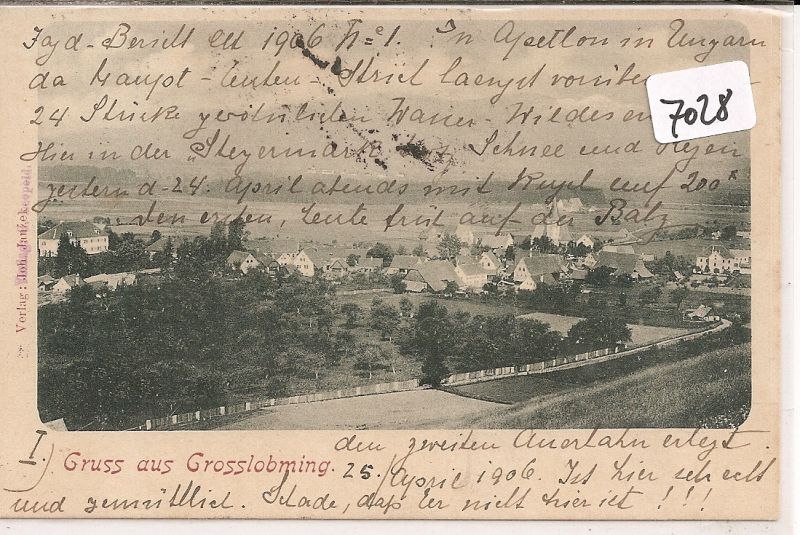 Jagd-Bericht Oll 1906 No 1. In Apetlon in Ungarn
da Haupt-Enten-Strich laengst vorüber
24 Stücke gewöhnlichen Wasser-Wildes
7028
Hier in der "Steyermark" bei Schnee und Regen
gestern d. 24. April abends mit Kugel auf 200x
den ersten, heute früh auf der Balz
Verlag: Joh.
I
dem zweiten Auerhahn erlegt.
Gruss aus Grosslobming. 25. April 1906. Ist hier sehr
und gemütlich. Schade, daß Er nicht hier ist!!!